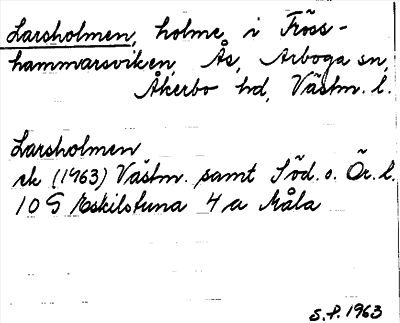 Larsholmen, holme i Fröss-
hammarsviken, Ås, Arboga sn,
Åkerbo hd, Västm. l.
Larsholmen
rk (1963) Västm. samt Söd. o. Ör. l.
10 G Eskilstuna 4 a Måla
S.P. 1963